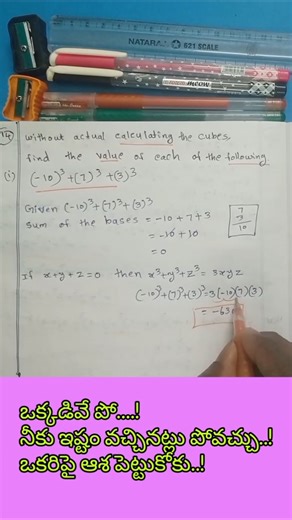 NATARAJ 621 SCALE
meow
14) without actual calculating the cubes
find the value of each of the following
(i) (-10)³+(7)³+(3)³
Given (-10)³+(7)³+(3)³
sum of the bases = -10+7+3
= -10+10
= 0
7
3
10
If x+y+z=0 then x³+y³+z³=3xyz
(-10)³+(7)³+(3)³=3(-10)(7)(3)
= -630
ఒక్కడివే పో....!
నీకు ఇష్టం వచ్చినట్లు పోవచ్చు..!
ఒకరిపై ఆశపెట్టుకోకు..!